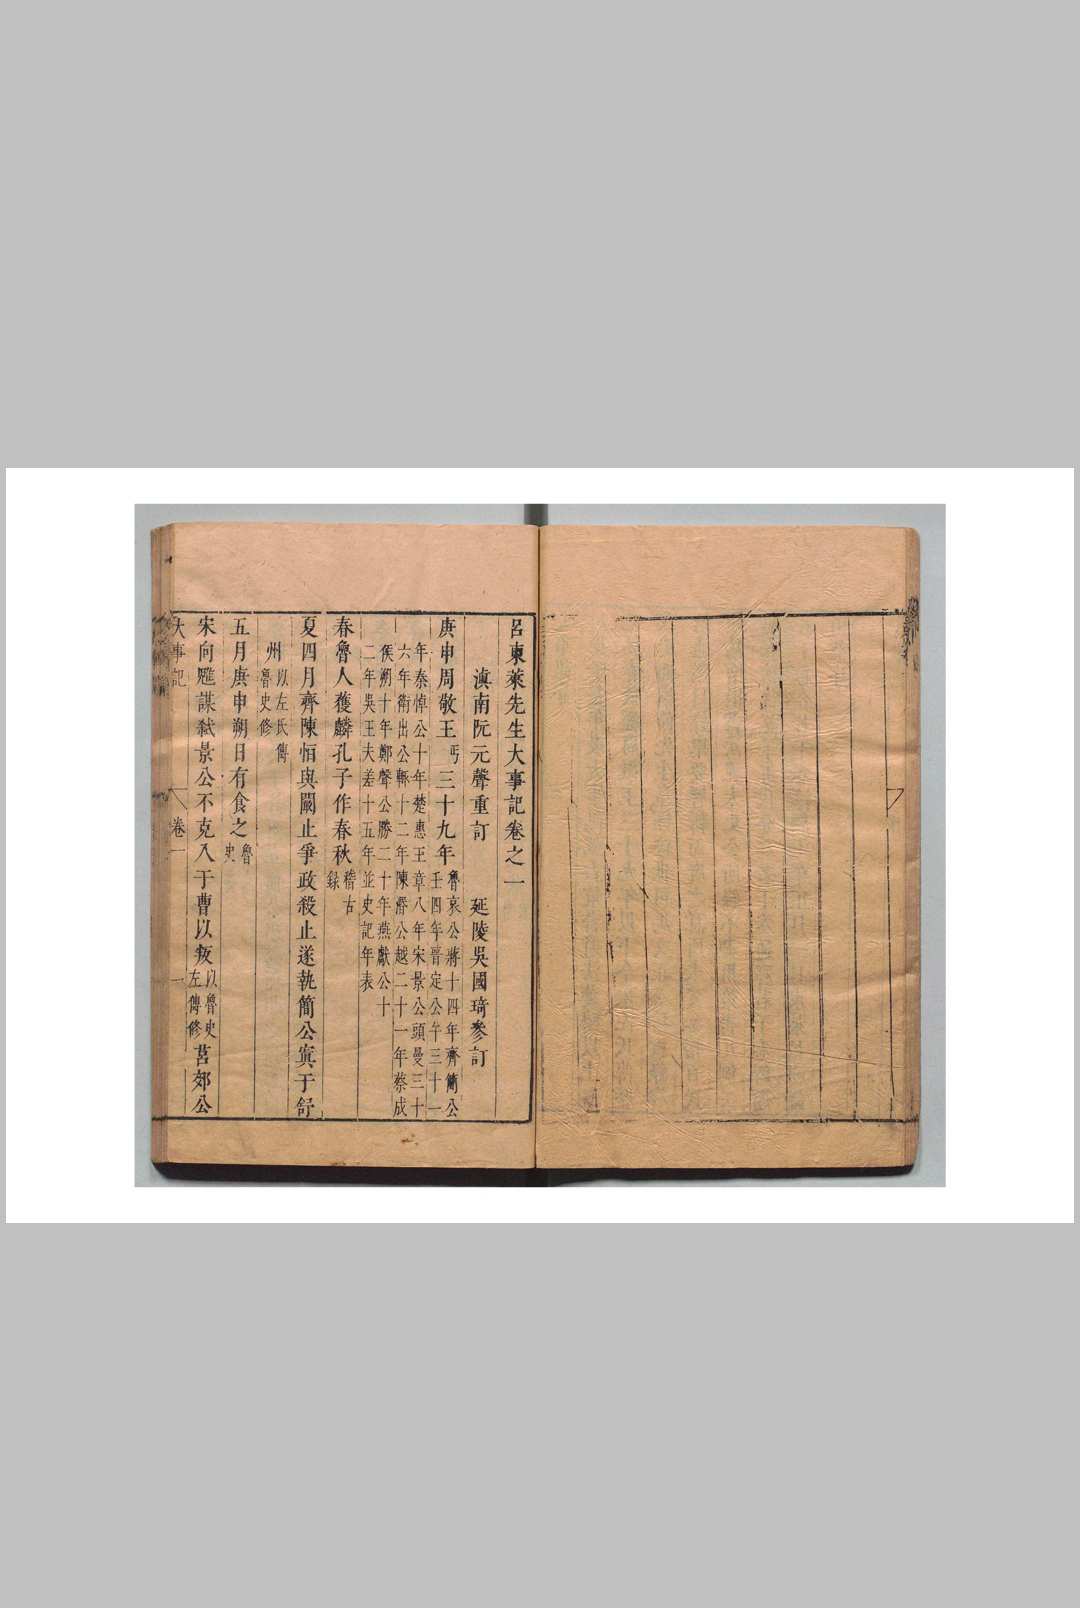 呂東萊先生大事記卷之一
滇南阮元聲重訂 延陵吳國琦參訂
庚申周敬王丐三十九年魯哀公蔣十四年齊簡公
壬四年晉定公午三十一
年秦悼公十年楚惠王章八年宋景公頭曼三十
六年衛出公輒十二年陳湣公越二十一年蔡成
侯朔十年鄭聲公勝二十年燕獻公十
二年吳王夫差十五年並史記年表
春魯人獲麟孔子作春秋稽古
錄
夏四月齊陳恒與闞止爭政殺止遂執簡公寘于舒
州以左氏傳
魯史修
五月庚申朔日有食之魯
史
宋向魋謀弒景公不克入于曹以叛以魯史
左傳修莒郊公
大事記 卷一 一